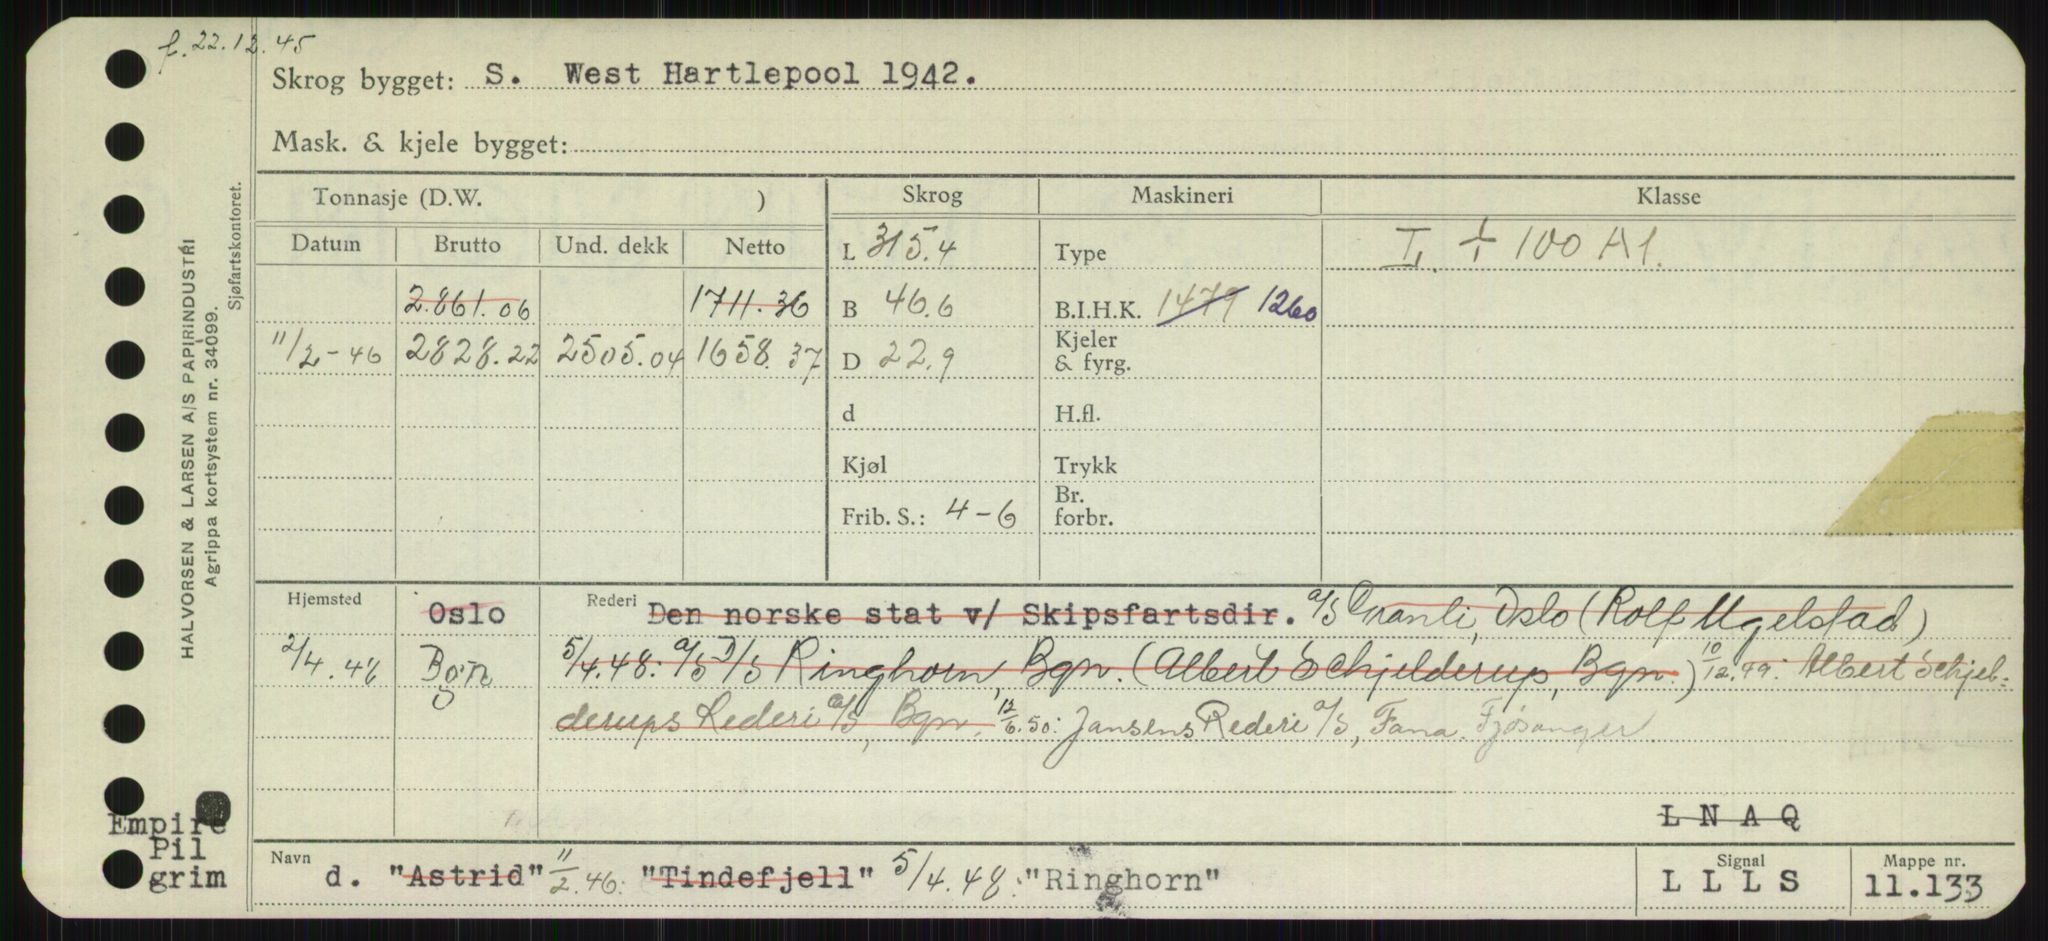 f. 22.12.45
Skrog bygget: S. West Hartlepool 1942.
Mask. & kjele bygget:
HALVORSEN & LARSEN A/S PAPIRINDUSTRI
Agrippa kortsystem nr. 34099.
Sjøfartskontoret.
Tonnasje (D.W. ) Skrog Maskineri Klasse
Datum Brutto Und. dekk Netto L 315.4 Type I. + 100 A1.
2.861.06 1711.36 B 46.6 B.I.H.K. 1479 1260
11/2-46 2828.22 2505.04 1658.37 D 22.9 Kjeler & fyrg.
d H.fl.
Kjøl Trykk
Frib. S.: 4-6 Br. forbr.
Hjemsted Oslo Rederi Den norske stat v/ Skipsfartsdir. a/s Granli, Oslo (Rolf Ugelstad)
2/4.48 Bgn 5/4.48: a/s D/S Ringhorn, Bgn. (Albert Schjelderup, Bgn.) 10/12.49: Albert Schjel-
derups Rederi a/s, Bgn. 12/6.50: Jansens Rederi a/s, Fana. Fjøsanger
L N A Q
Empire
Pil
grim
Navn d. "Astrid" 11/2.46: "Tindefjell" 5/4.48: "Ringhorn" Signal L L L S Mappe nr. 11.133